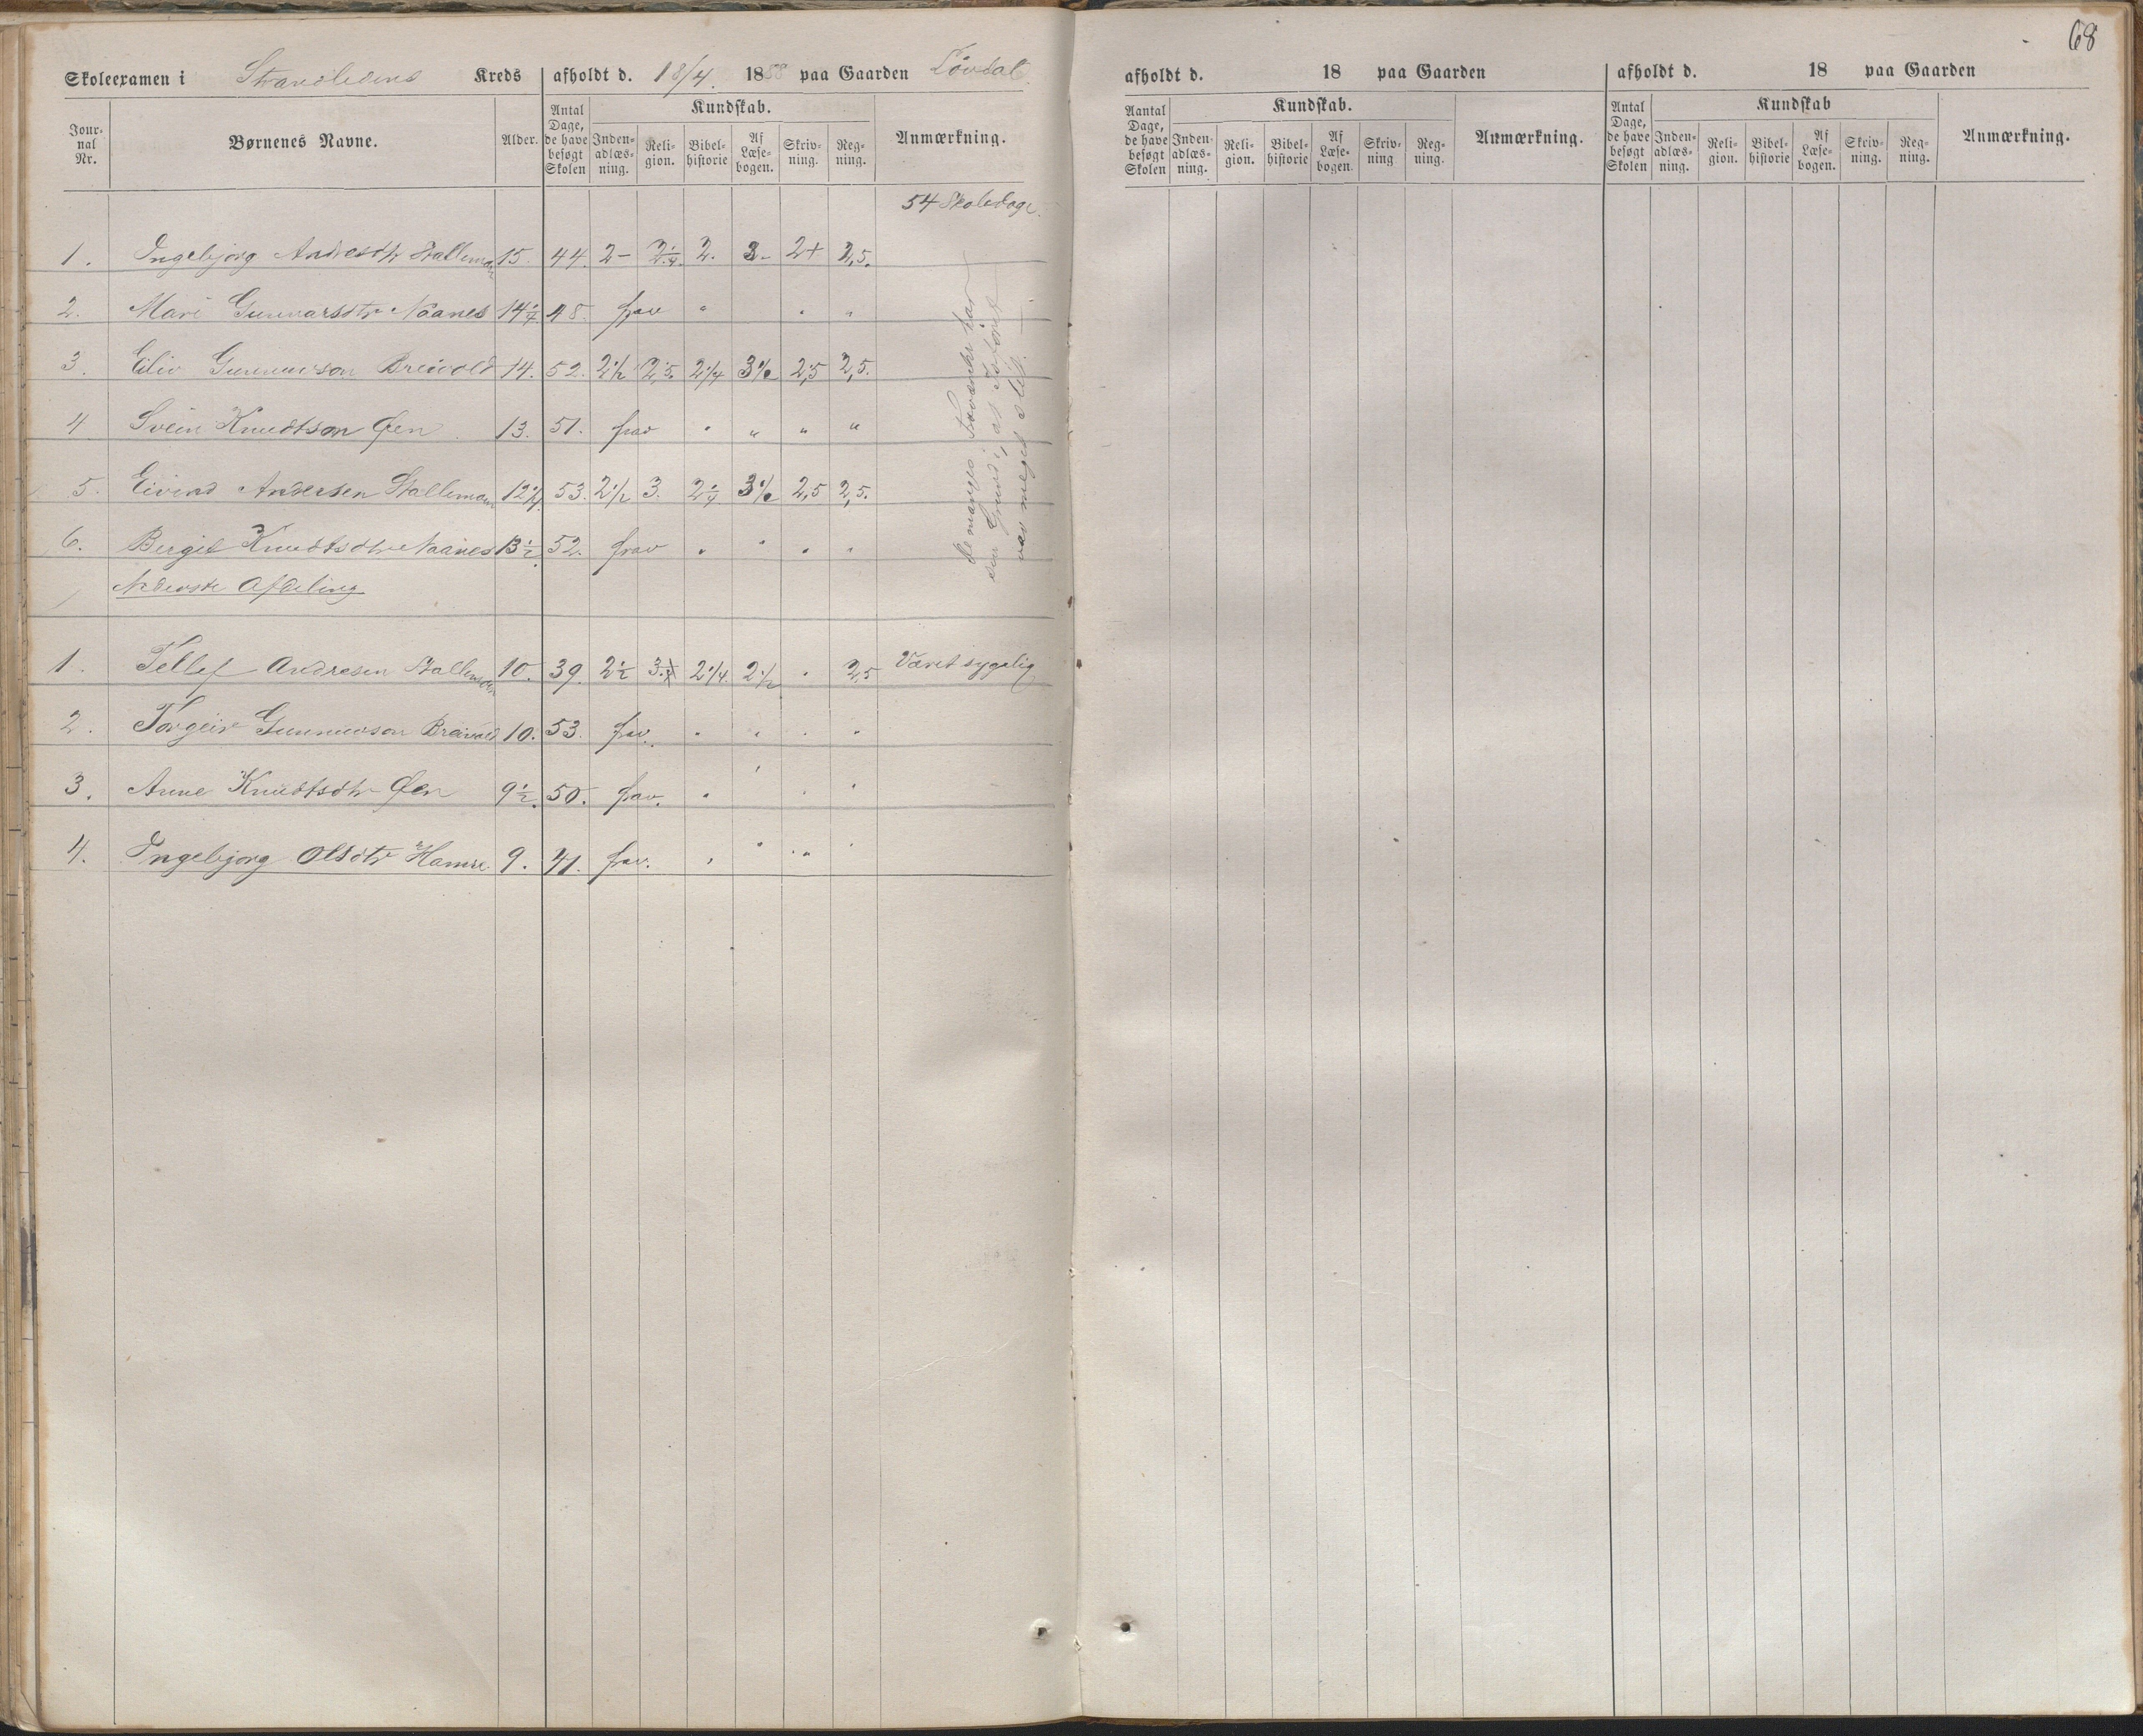 68
Skoleexamen i Strandlidens Kreds afholdt d. 18/4 1888 paa Gaarden Løvdal
Jour-nal Nr. Børnenes Navne. Alder. Antal Dage, de have besøgt Skolen Kundskab. Inden-adlæs-ning. Reli-gion. Bibel-historie Af Læse-bogen. Skriv-ning. Reg-ning. Anmærkning.
54 Skoledage.
1. Ingebjørg Andresdtr Stallemoen 15. 44. 2- 2 1/4. 2. 2- 2+ 2,5.
2. Mari Gunnarsdtr Naanes 14 1/4 48. frav " " "
3. Eiliv Gunnarson Breivold 14. 52. 2 1/2 2,5. 2 1/4 2,5 2,5.
4 Svein Knudtson Øen 13. 51. frav " " " "
5. Eivind Andersen Stallemoen 12 1/2 53. 2 1/2 3. 2 1/4 2,5 2,5.
6. Bergit Knudtsdtr Naanes 13 1/2 52. frav " " " "
De manges Fraværelse har
sin Grund i, at Isføret
var meget slet.
Nederste Afdeling
1. Tellef Andresen Stallemoen 10. 39. 2 1/2 2 1/4. 2 1/2 " 2,5 Været sygelig
2. Torgeir Gunnarson Breivold 10. 53. frav. " " " "
3. Anne Knudtsdtr Øen 9 1/2. 50. frav. " " " "
4. Ingebjørg Olsdtr Hamre 9. 41. frav. " " " "
afholdt d. 18 paa Gaarden
Aantal Dage, de have besøgt Skolen Kundskab. Inden-adlæs-ning. Reli-gion. Bibel-historie Af Læse-bogen. Skriv-ning Reg-ning. Anmærkning.
afholdt d. 18 paa Gaarden
Antal Dage, de have besøgt Skolen Kundskab Inden-adlæs-ning. Reli-gion. Bibel-historie Af Læse-bogen. Skriv-ning. Reg-ning. Anmærkning.